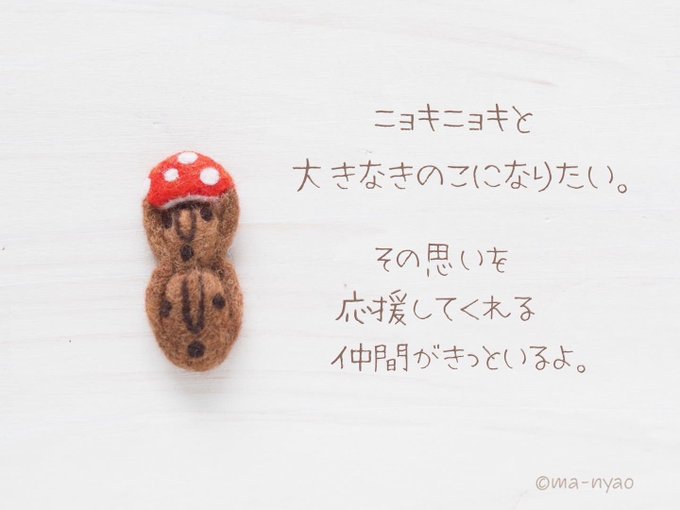 ニョキニョキと
大きなきのこになりたい。
その思いを
応援してくれる
仲間がきっといるよ。
©ma-nyao